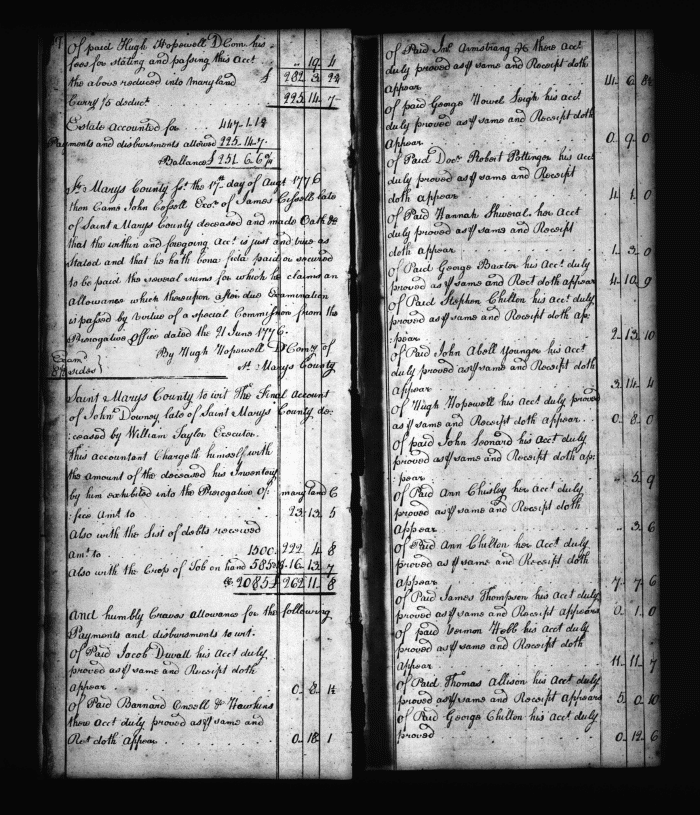 Of paid Hugh Hopewell D Com. his
fees for stating and passing this Acct .. 19 4
the above reduced into Maryland £ 282 3
Curry ⅕ deduct 225 14 7
Estate accounted for 447. 1. 1
Payments and disbursments allowed 225. 14. 7.
Ballance £ 6.
St. Marys County Sc. the 17th day of Augt 1776
then Came John Cissell Exor. of James Cissell late
of Saint Marys County deceased and made Oath
that the within and foregoing Acct. is just and true as
stated and that he hath bona fide paid or secured
to be paid the several sums for which he claims an
allowance which thereupon after due Examination
is passed by virtue of a special Commission from the
Prerogative Office dated the 21 June 1776.
Exam
sides
By Hugh Hopewell D Comy of
St. Marys County
Saint Marys County to wit The Final Account
of John Downey late of Saint Marys County de:
:ceased by William Taylor Executor.
This accountant Chargeth himself with
the amount of the deceased his Inventory
by him exhibited into the Prerogative Of: maryland C
:fice Amt to 23. 13. 5
Also with the List of debts received
Amt. to 1500. 222 4 8
Also with the Crop of Tob on hand 585 16. 13. 7
2085 £ 262 11 8
And humbly Craves allowance for the following
Payments and disbursments to wit.
Of Paid Jacob Duvall his Acct duly
proved as ⅌ same and Receipt doth
appear 0. 2.
Of Paid Barnard & Hawkins
there Acct duly proved as ⅌ same and
Rect doth Appear 0. 18. 1
Of Paid Jno. Armstrong & there Acct
duly proved as ⅌ same and Receipt doth
appear 6.
Of paid George Howel Leigh his acct
duly proved as ⅌ same and Receipt doth
Appear 0. 9. 0
Of Paid Docr Robert Pottinger his Acct
duly proved as ⅌ same and Receipt
doth appear 4. 1. 0
Of Paid Hannah her Acct
duly proved as ⅌ same and Receipt
doth appear 1. 3. 0
Of Paid George Baxter his Acct. duly
proved as ⅌ same and Rect doth appear 4. 10. 9
Of Paid Stephen Chilton his Acct. duly
proved as ⅌ same and Receipt doth ap:
:pear 2. 13. 10
Of Paid John Abell Younger his Acct
duly proved as ⅌ same and Receipt doth
Appear 3. 14. 4
Of Hugh Hopewell his Acct duly proved
as ⅌ same and Receipt doth appear 0. 8. 0
Of paid John Leonard his Acct duly
proved as ⅌ same and Receipt doth ap:
:pear .. 5. 9
Of Paid Ann her Acct duly
proved as ⅌ same and Receipt doth
Appear .. 3. 6
Of Paid Ann Chilton her Acct. duly
proved as ⅌ same and Receipt doth
Appear 7. 7. 6
Of Paid James Thompson his Acct duly
proved as ⅌ same and Receipt appears 0. 1. 0
Of paid Vernon Hebb his Acct duly
proved as ⅌ same and Receipt doth
Appear 11. 11. 7
Of Paid Thomas Allison his Acct duly
proved as ⅌ same and Receipt appears 5. 0. 10
Of Paid George Chilton his Acct duly
proved 0. 12. 6